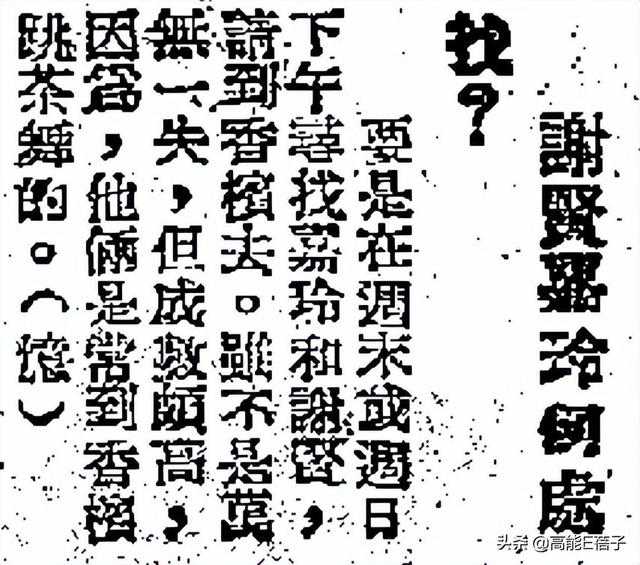 謝賢嘉玲何處
找?
要是在週末或週日
下午找嘉玲和謝賢,
請到香檳去。雖不是萬
無一失,但成數頗高,
因爲,他倆是常到香檳
跳茶舞的。(憶)
头条 @高能E蓓子